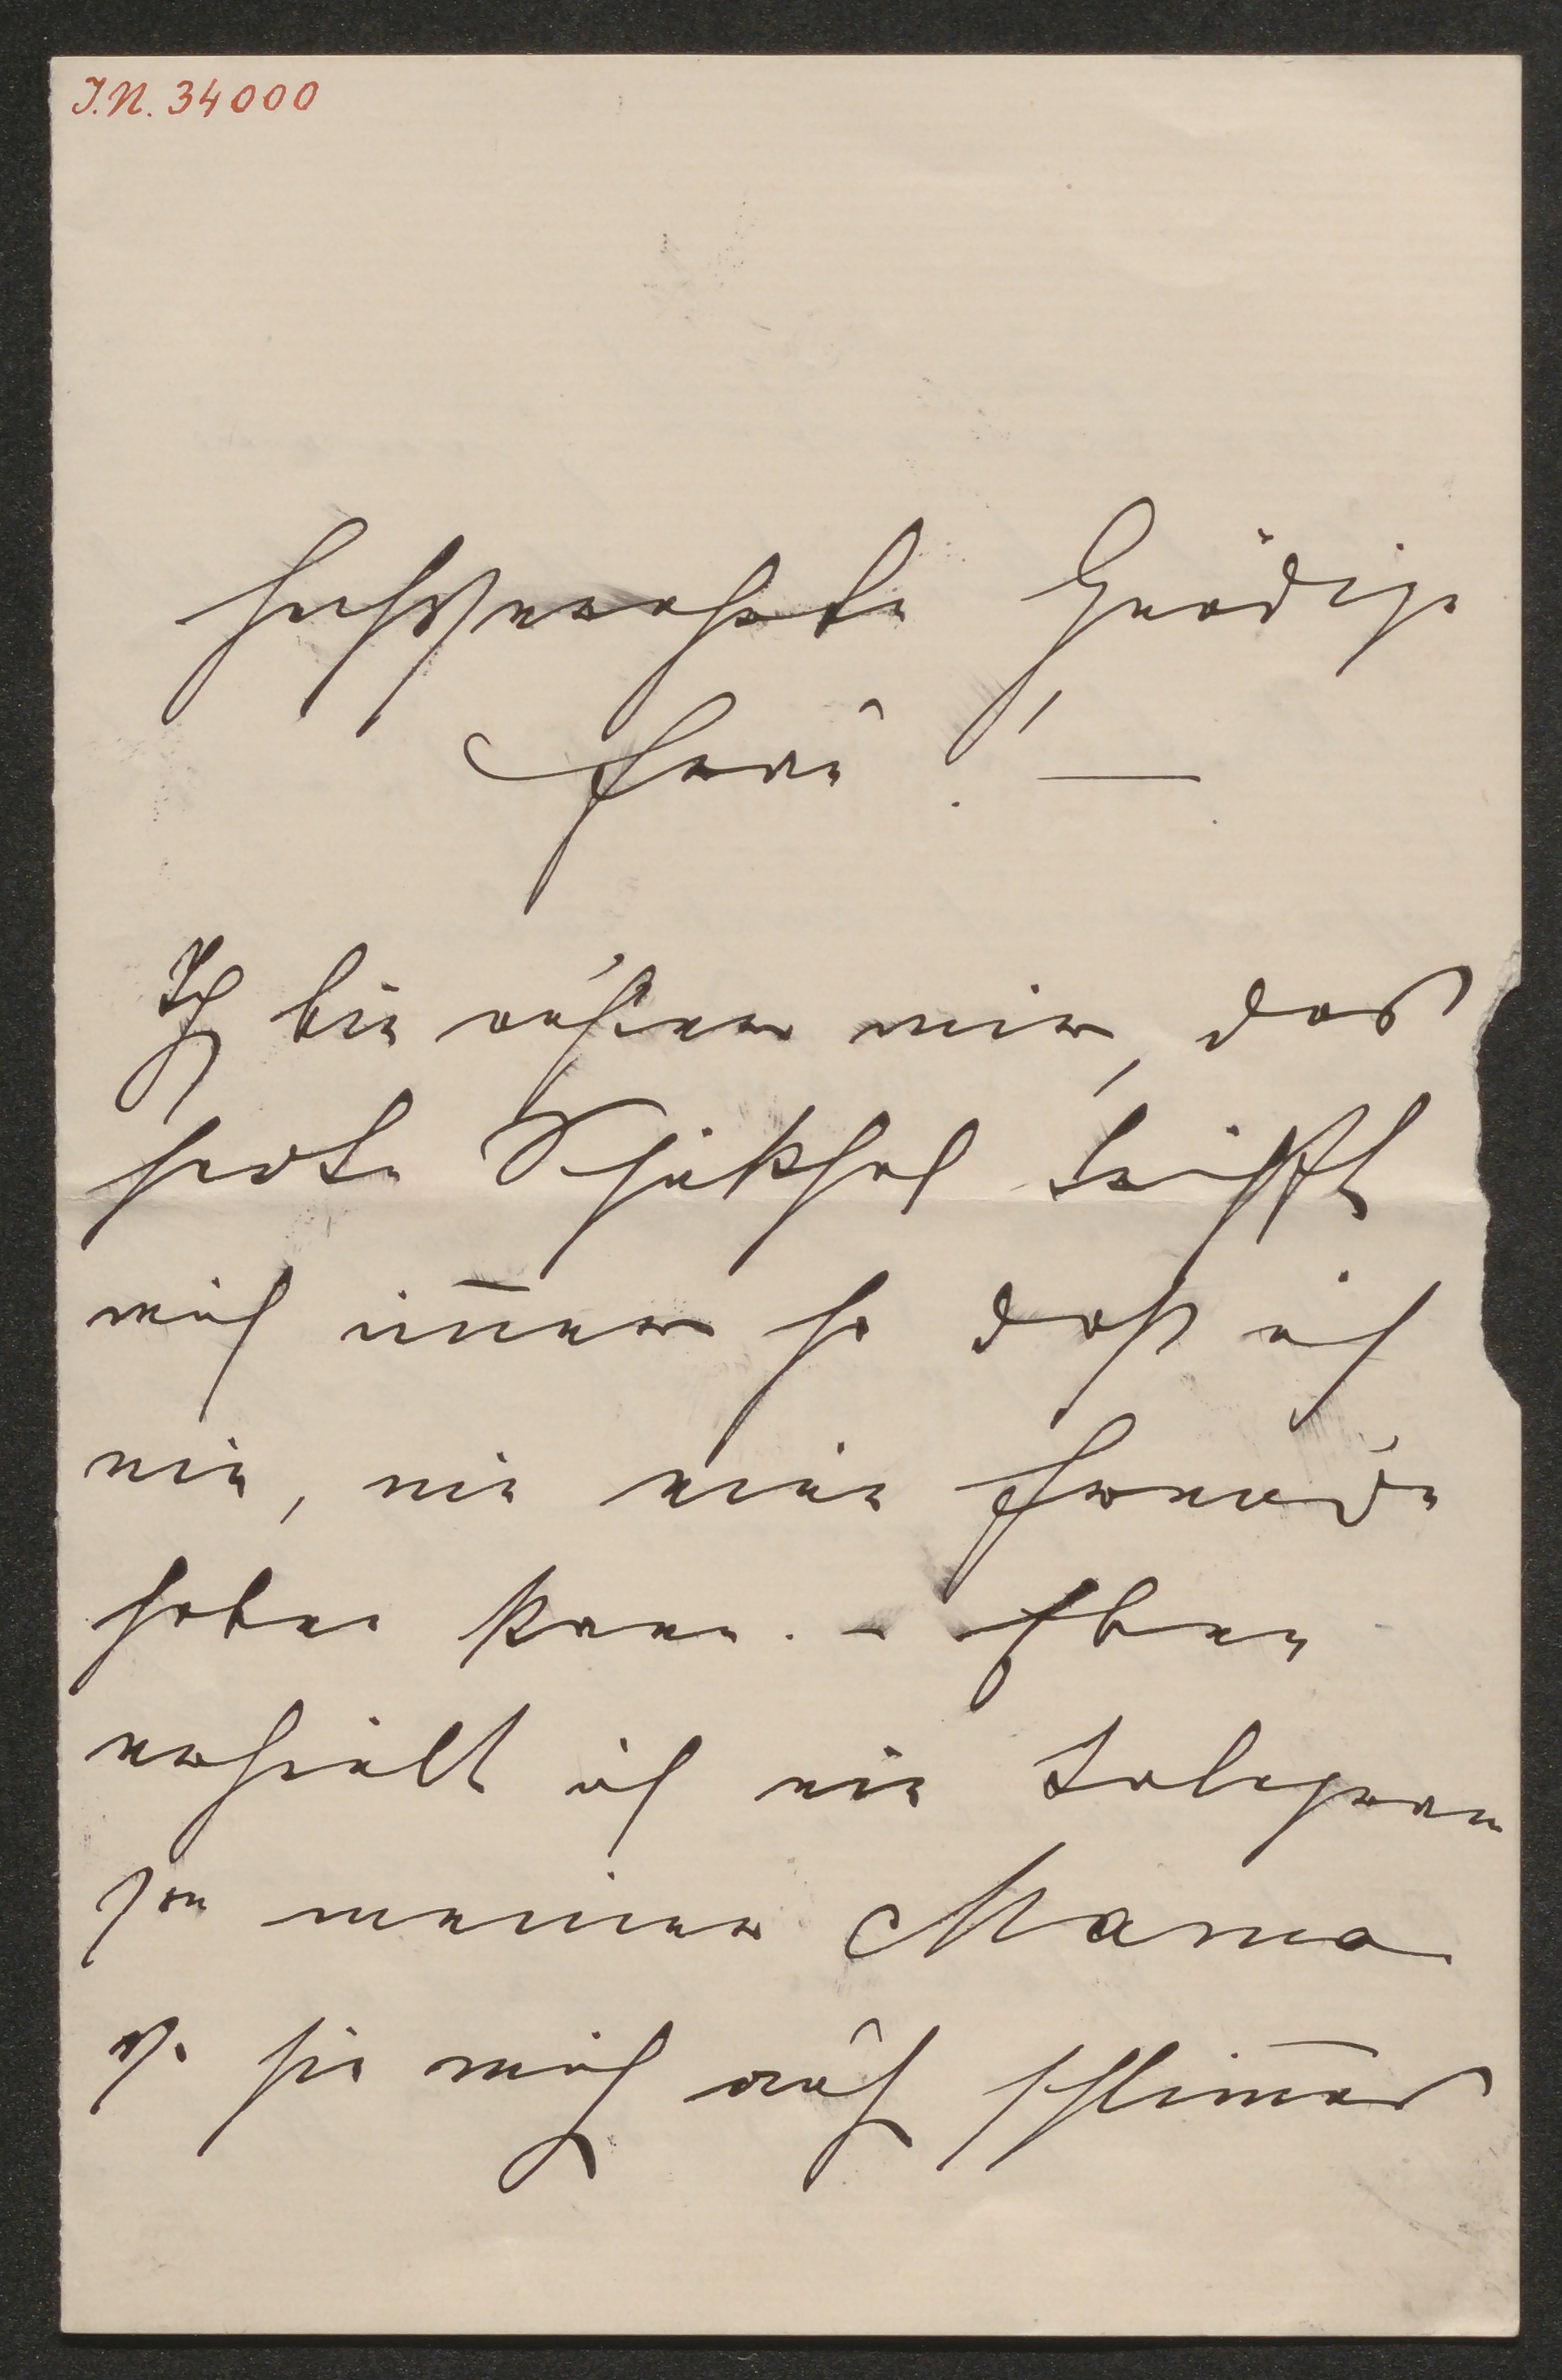 I.N. 34000
Hochverehrte Gnädige
Frau! —
Ich bin außer mir, das
harte Schiksal trifft
mich im̅er so daß ich
nie, nie eine Freude
haben kann. – Eben
erhielt ich ein Telegram
von meiner Mama
sie mich auf schlim̅es